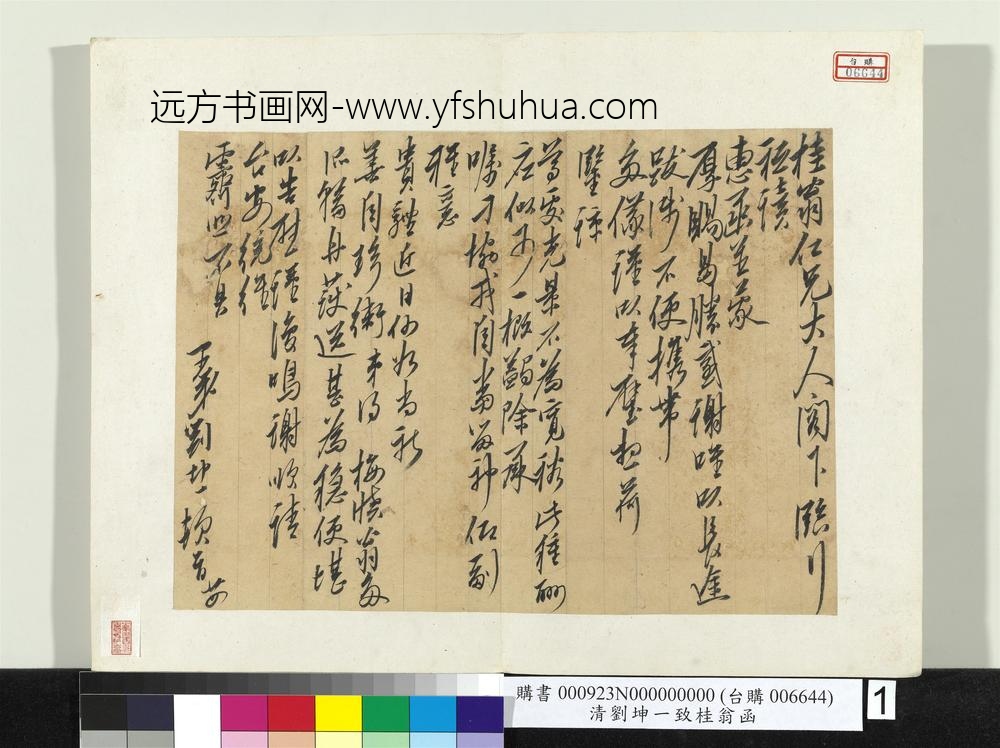 远方书画网-www.yfshuhua.com
台購
06644
桂翁仁兄大人閣下臨行
惠函並蒙
厚賜曷勝感謝惟以長途
跋涉不便攜帶
敬儀謹以奉璧想荷
鑒諒
尊處光景不為寬裕此種酬
應似可一概蠲除承
囑刁協戎自當留神仰副
雅意
貴體近日何如當祈
善自珍衛弟得梅曉翁
舟護送甚為穩便堪
以告慰謹復鳴謝順請
台安統維
霽照不具
弟劉坤一頓首
購書 000923N000000000 (台購 006644)
清劉坤一致桂翁函
1